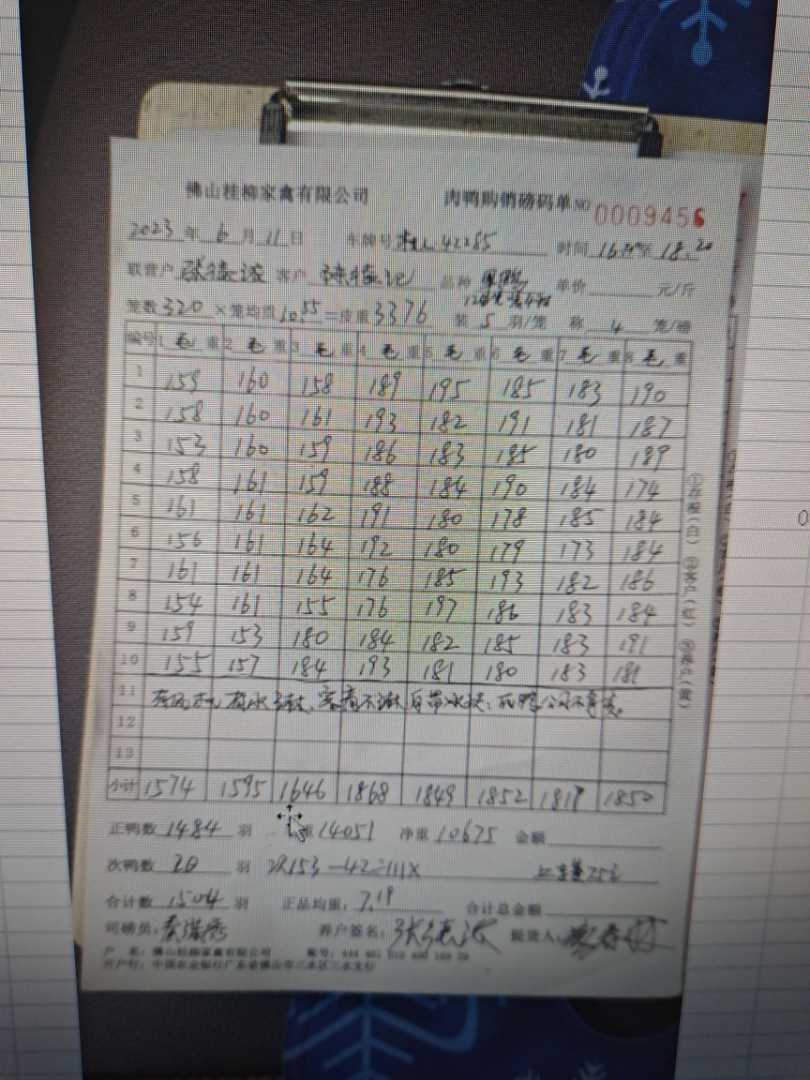 佛山桂柳家禽有限公司 肉鸭购销磅码单 NO 0009456
2023年6月11日 车牌号 42285 时间 16 至 18:20
联营户 张德波 客户 品种 单价 元/斤
笼数 320 ×笼均重 10.55 =皮重 3376 装 5 羽/笼 称 4 笼/磅
编号 1 毛 重 2 毛 重 3 毛 重 4 毛 重 5 毛 重 6 毛 重 7 毛 重 8 毛 重
1 159 160 158 189 195 185 183 190
2 158 160 161 193 182 191 181 187
3 153 160 159 186 183 185 180 189
4 158 161 159 188 184 190 184 174
5 161 161 162 191 180 178 185 184
6 156 161 164 192 180 179 173 184
7 161 161 164 176 185 193 182 186
8 154 161 155 176 197 186 183 184
9 159 153 180 184 182 185 183 191
10 155 157 184 193 181 180 183 181
11 死鸭公司不负责。
12
13
小计 1574 1595 1646 1868 1849 1852 1817 1850
正鸭数 1484 羽 重 14051 净重 10675 金额
次鸭数 20 羽 153-42=111
合计数 1504 羽 正品均重: 7.19 合计总金额
司磅员: 养户签名: 张德波 提货人:
户 名: 佛山桂柳家禽有限公司 账号:
开户行: 中国农业银行广东省佛山市三水区三水支行
①存根(白) ②客户(红) ③养户(黄)